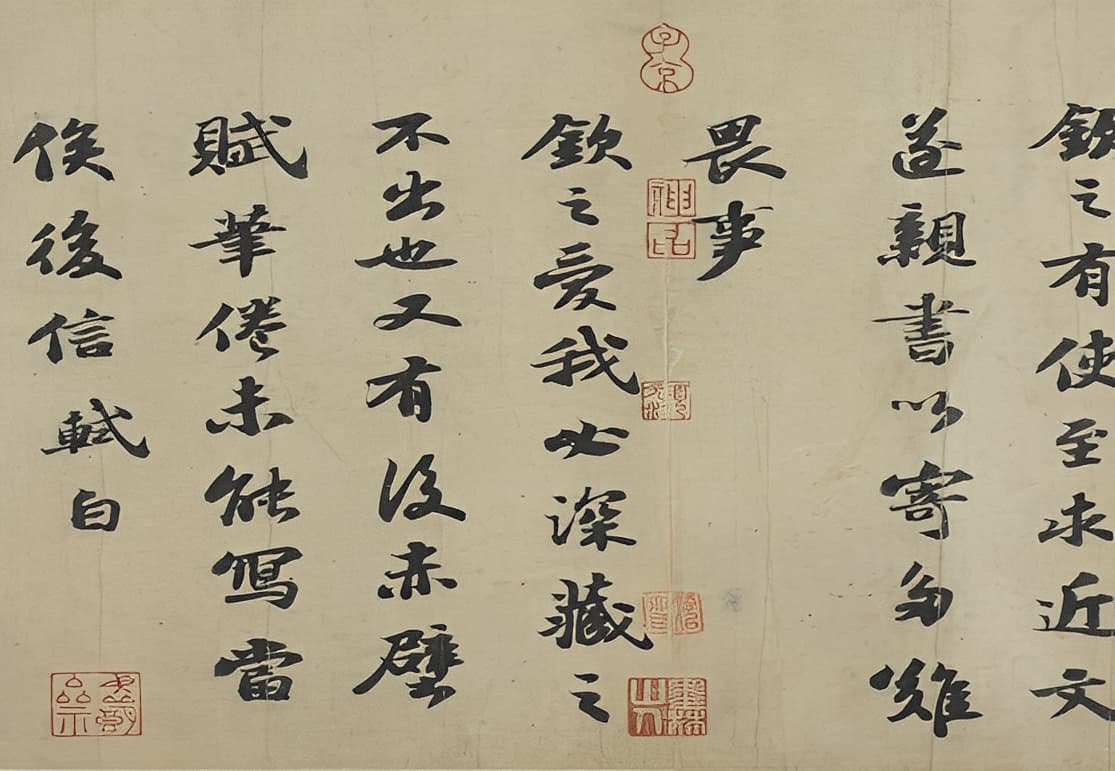 欽之有使至求近文
遂親書以寄多難
畏事
欽之愛我必深藏之
不出也又有後赤壁
賦筆倦未能寫當
俟後信軾白
神品